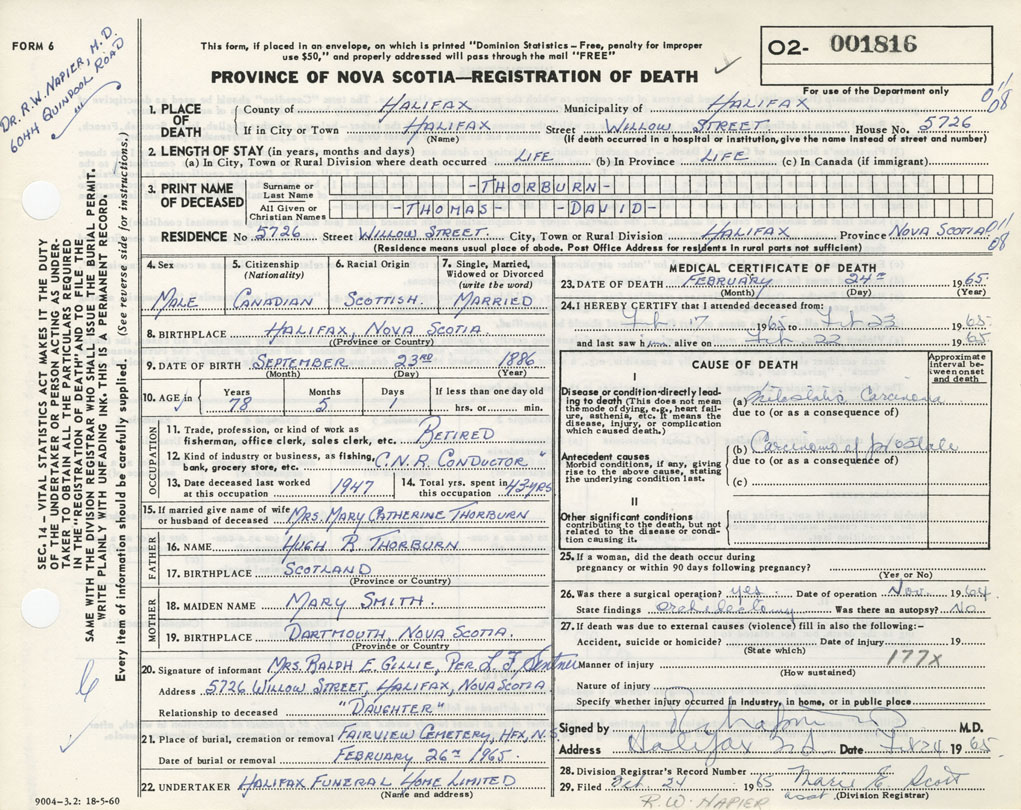 FORM 6
Dr. R.W. NAPIER, M.D.
6044 QUINPOOL ROAD
This form, if placed in an envelope, on which is printed "Dominion Statistics – Free, penalty for improper
use $50," and properly addressed will pass through the mail "FREE"
PROVINCE OF NOVA SCOTIA—REGISTRATION OF DEATH
O2- 001816
For use of the Department only
1. PLACE OF DEATH
County of HALIFAX Municipality of HALIFAX
If in City or Town HALIFAX Street WILLOW STREET House No. 5726
(Name) (If death occurred in a hospital or institution, give the name instead of street and number)
2. LENGTH OF STAY (in years, months and days)
(a) In City, Town or Rural Division where death occurred LIFE (b) In Province LIFE (c) In Canada (if immigrant)
3. PRINT NAME OF DECEASED
Surname or Last Name -THORBURN-
All Given or Christian Names -THOMAS- -DAVID-
RESIDENCE No. 5726 Street WILLOW STREET. City, Town or Rural Division HALIFAX Province NOVA SCOTIA
(Residence means usual place of abode. Post Office Address for residents in rural parts not sufficient)
4. Sex MALE
5. Citizenship (Nationality) CANADIAN
6. Racial Origin SCOTTISH.
7. Single, Married, Widowed or Divorced (write the word) MARRIED
8. BIRTHPLACE HALIFAX, NOVA SCOTIA
(Province or Country)
9. DATE OF BIRTH SEPTEMBER 23RD 1886
(Month) (Day) (Year)
10. AGE in Years 78 Months 5 Days 1 If less than one day old hrs. or min.
OCCUPATION
11. Trade, profession, or kind of work as
fisherman, office clerk, sales clerk, etc. RETIRED
12. Kind of industry or business, as fishing,
bank, grocery store, etc. "C.N.R. CONDUCTOR"
13. Date deceased last worked
at this occupation 1947
14. Total yrs. spent in
this occupation 43 YRS
15. If married give name of wife
or husband of deceased MRS. MARY CATHERINE THORBURN
FATHER
16. NAME HUGH R. THORBURN
17. BIRTHPLACE SCOTLAND
(Province or Country)
MOTHER
18. MAIDEN NAME MARY SMITH.
19. BIRTHPLACE DARTMOUTH, NOVA SCOTIA.
(Province or Country)
20. Signature of informant MRS. RALPH E. GILLIE, PER L F
Address 5726 WILLOW STREET, HALIFAX, NOVA SCOTIA
Relationship to deceased "DAUGHTER"
21. Place of burial, cremation or removal FAIRVIEW CEMETERY, HFX, N.S.
Date of burial or removal FEBRUARY 26TH 1965
22. UNDERTAKER HALIFAX FUNERAL HOME LIMITED
(Name and address)
9004–3.2: 18-5-60
MEDICAL CERTIFICATE OF DEATH
23. DATE OF DEATH FEBRUARY 24TH 1965
(Month) (Day) (Year)
24. I HEREBY CERTIFY that I attended deceased from:
Feb 17 1965 to Feb 23 1965
and last saw him alive on Feb 22 1965
CAUSE OF DEATH
Approximate interval between onset and death
I
Disease or condition directly leading
to death (This does not mean
the mode of dying, e.g., heart failure,
asthenia, etc. It means the
disease, injury, or complication
which caused death.)
(a) Metastatic Carcinoma
due to (or as a consequence of)
Antecedent causes
Morbid conditions, if any, giving
rise to the above cause, stating
the underlying condition last.
(b) Carcinoma of prostate
due to (or as a consequence of)
(c)
II
Other significant conditions
contributing to the death, but not
related to the disease or condition
causing it.
25. If a woman, did the death occur during
pregnancy or within 90 days following pregnancy?
(Yes or No)
26. Was there a surgical operation? yes. Date of operation Nov. 1964.
State findings orchidectomy Was there an autopsy? No
27. If death was due to external causes (violence) fill in also the following:–
Accident, suicide or homicide? Date of injury 19
(State which)
177X
Manner of injury
(How sustained)
Nature of injury
Specify whether injury occurred in industry, in home, or in public place
Signed by M.D.
Address Halifax Date Feb 24 1965
28. Division Registrar's Record Number
29. Filed Feb. 24 1965 Marie E Scott
asst. (Division Registrar)
R.W. NAPIER
SEC. 14 – VITAL STATISTICS ACT MAKES IT THE DUTY
OF THE UNDERTAKER OR PERSON ACTING AS UNDERTAKER
TO OBTAIN ALL THE PARTICULARS REQUIRED
IN THE "REGISTRATION OF DEATH" AND TO FILE THE
SAME WITH THE DIVISION REGISTRAR WHO SHALL ISSUE THE BURIAL PERMIT.
WRITE PLAINLY WITH UNFADING INK. THIS IS A PERMANENT RECORD.
Every item of information should be carefully supplied. (See reverse side for instructions.)